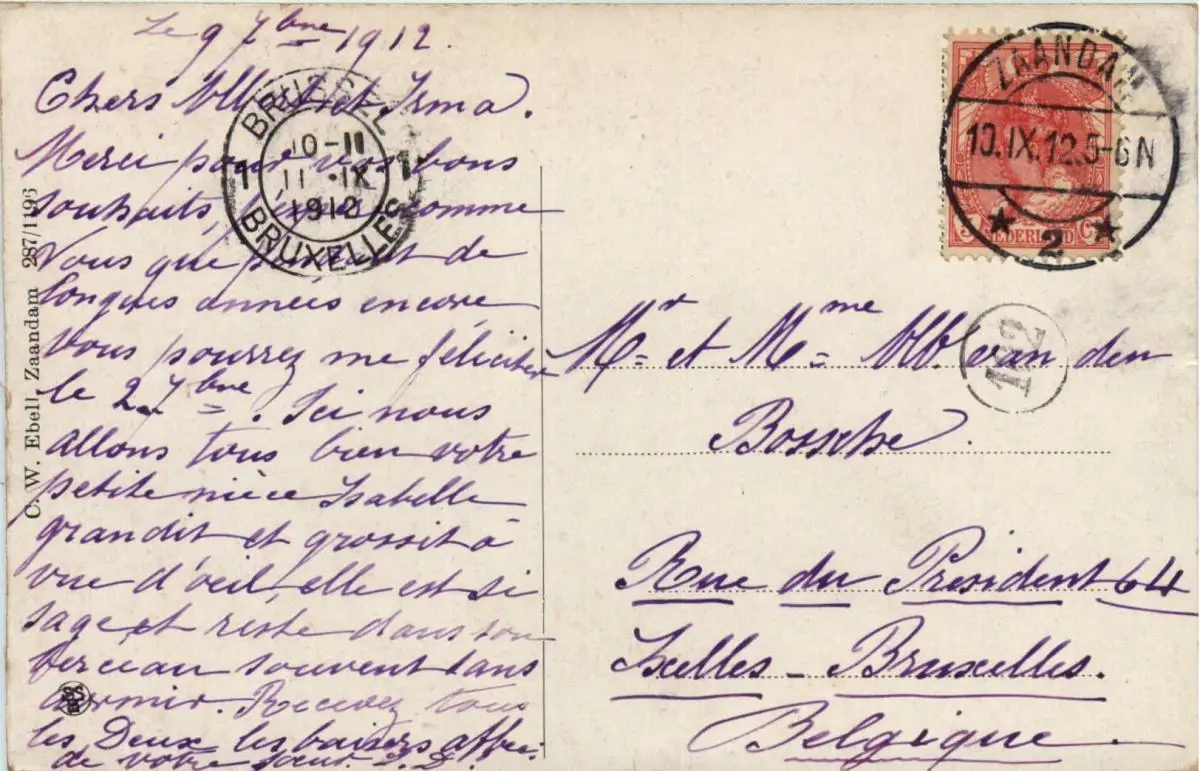 Le 9 7bne 1912.
Chers Albert et Irma.
Merci pour vos bons
souhaits, comme
Vous que pendant de
longues années encore
vous pourrez me féliciter
le 2 7bne. Ici nous
allons tous bien votre
petite nièce Isabelle
grandit et grossit à
vue d'oeil, elle est si
sage et reste dans son
berceau souvent sans
dormir. Recevez tous
les Deux les baisers affec.
de votre soeur. J. D.
C. W. Ebell, Zaandam 287/1196
BRUSSEL
1 10-11 1
11 · IX
1912
BRUXELLES
ZAANDAM
10.IX.12.5-6N
2
5 Ct
NEDERLAND
182
Mr et Mme Alb. van den
Bossche.
Rue du Président 64
Ixelles - Bruxelles.
Belgique